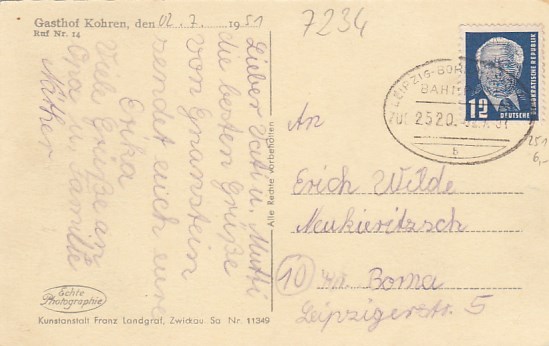 Gasthof Kohren, den 02.7. 1951
Ruf Nr. 14
7234
Lieber Vati u. Mutti
die besten Grüße
von Gnanstein
sendet euch eure
Erika
Viele Grüße an
Opa u. Familie
Näther
Alle Rechte vorbehalten
LEIPZIG-BOR
BAHN
ZUG 2520
b
12
DEUTSCHE
DEMOKRATISCHE REPUBLIK
251
6,-
An
Erich Wilde
Neukieritzsch
10 Borna
Leipzigerstr. 5
Echte
Photographie
Kunstanstalt Franz Landgraf, Zwickau Sa Nr. 11349